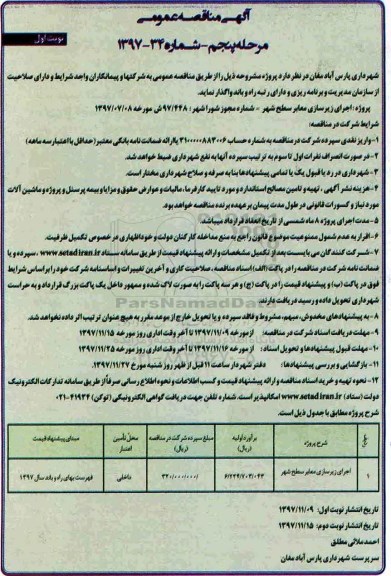 آگهی مناقصه عمومی
مرحله پنجم - شماره ۳۴-۱۳۹۷
نوبت اول
شهرداری پارس آباد مغان در نظر دارد پروژه مشروحه ذیل را از طریق مناقصه عمومی به شرکتها و پیمانکاران واجد شرایط و دارای صلاحیت
از سازمان مدیریت و برنامه ریزی و دارای رتبه راه و باند واگذار نماید.
پروژه : اجرای زیرسازی معابر سطح شهر - شماره مجوز شورا شهر : ۹۷/۴۴۸ش مورخه ۱۳۹۷/۰۷/۰۸
شرایط شرکت در مناقصه:
۱-واریز نقدی سپرده شرکت در مناقصه به شماره حساب ۳۱۰۰۰۰۰۸۸۳۰۰۶ یا ارائه ضمانت نامه بانکی معتبر (حداقل با اعتبار سه ماهه)
۲-در صورت انصراف نفرات اول تا سوم به ترتیب سپرده آنها به نفع شهرداری ضبط خواهد شد.
۳-شهرداری در رد یا قبول یک یا تمامی پیشنهادها بنا به صرفه و صلاح شهرداری مختار است.
۴-هزینه نشر آگهی ، تهیه و تامین مصالح استاندارد و مورد تایید کارفرما، مالیات و عوارض حقوق و مزایا و بیمه پرسنل و پروژه و ماشین آلات
مورد نیاز و کسورات قانونی در طول مدت پیمان بر عهده برنده مناقصه خواهد بود.
۵-مدت اجرای پروژه ۸ ماه شمسی از تاریخ انعقاد قرارداد میباشد.
۶-اقرار به عدم شمول ممنوعیت موضوع قانون راجع به منع مداخله کارکنان دولت و خوداظهاری در خصوص تکمیل ظرفیت.
۷-شرکت کنندگان می بایست بعد از تکمیل مشخصات و ارائه پیشنهاد قیمت از طریق سامانه ستاد www.setadiran.ir ، سپرده و یا
ضمانت نامه شرکت در مناقصه را در پاکت (الف) اسناد مناقصه، صلاحیت کاری و آخرین تغییرات و اساسنامه شرکت خود را بر اساس شرایط
فوق در پاکت (ب) و پیشنهاد قیمت را در پاکت (ج) و هر سه پاکت را به صورت لاک شده و ممهور داخل یک پاکت بزرگ قرار داده و به حراست
شهرداری تحویل داده و رسید دریافت دارند.
۸-به پیشنهادهای مخدوش، مبهم، مشروط و فاقد سپرده و یا تحویل خارج از موعد مقرر به هیچ عنوان ترتیب اثر داده نخواهد شد.
۹-مهلت دریافت اسناد شرکت در مناقصه: از مورخه ۱۳۹۷/۱۱/۰۹ تا آخر وقت اداری روز مورخه ۱۳۹۷/۱۱/۱۵
۱۰-مهلت قبول پیشنهادها و تحویل اسناد: از مورخه ۱۳۹۷/۱۱/۱۶ تا آخر وقت اداری روز مورخه ۱۳۹۷/۱۱/۲۵
۱۱-بازگشایی و بررسی پیشنهادها: دفتر شهردار ساعت ۱۱ قبل از ظهر روز شنبه مورخ ۱۳۹۷/۱۱/۲۷
۱۲-نحوه تهیه و خرید اسناد مناقصه و ارائه پیشنهاد قیمت و کسب اطلاعات و نحوه اطلاع رسانی صرفاً از طریق سامانه تدارکات الکترونیک
دولت (ستاد) www.setadiran.ir امکانپذیر است. شماره تلفن جهت دریافت گواهی الکترونیکی (توکن) ۴۱۹۳۴-۰۲۱
شرح پروژه مطابق با جدول ذیل است.
ردیف شرح پروژه برآورد اولیه (ریال) مبلغ سپرده شرکت در مناقصه (ریال) محل تأمین اعتبار مبنای پیشنهاد قیمت
۱ اجرای زیرسازی معابر سطح شهر ۶/۲۳۹/۷۰۳/۰۴۳ ۳۲۰/۰۰۰/۰۰۰ داخلی فهرست بهای راه و باند سال ۱۳۹۷
تاریخ انتشار نوبت اول: ۱۳۹۷/۱۱/۰۹
تاریخ انتشار نوبت دوم: ۱۳۹۷/۱۱/۱۵
احمد ملائی مطلق
سرپرست شهرداری پارس آباد مغان
ParsNamadData